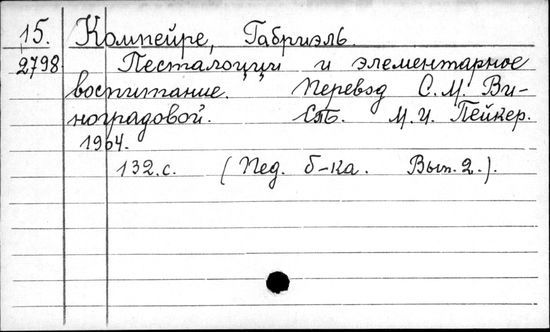 15. Компейре, Габриэль.
2798 Песталоцци и элементарное
воспитание. Перевод С. М. Ви-
ноградовой. Спб. М. И. Пейкер.
1904.
132.с. (Пед. б-ка. Вып. 2.).